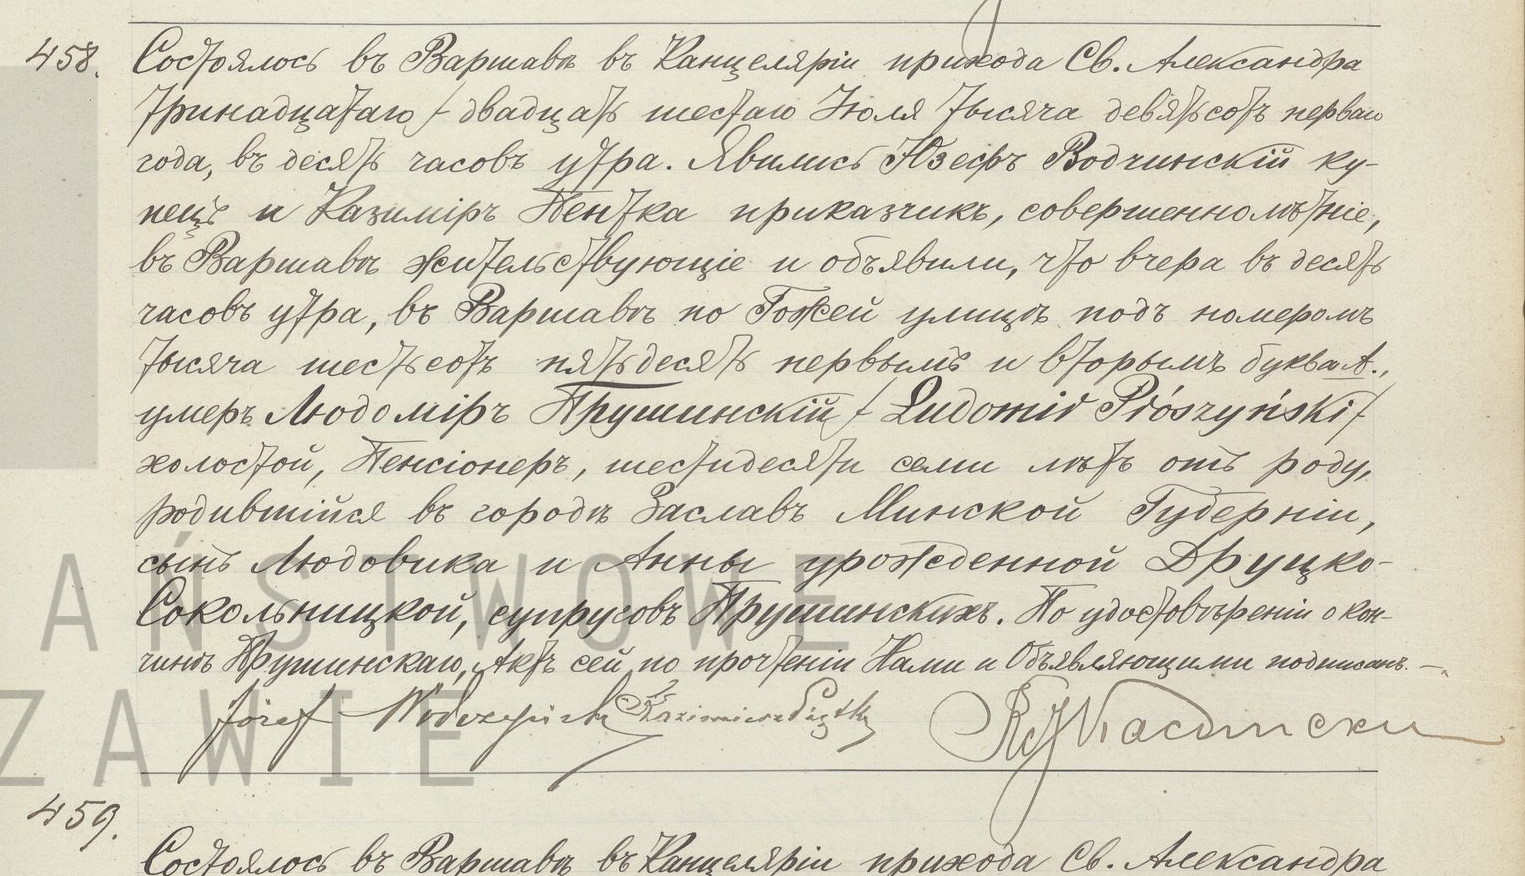 458. Состоялось въ Варшавѣ въ Канцеляріи прихода Св. Александра
тринадцатаго / двадцать шестаго Іюля тысяча девятьсотъ перваго
года, въ десять часовъ утра. Явились Юзефъ Водчинскій ку-
пецъ и Казиміръ Пентка приказчикъ, совершеннолѣтніе,
въ Варшавѣ жительствующіе и объявили, что вчера въ десять
часовъ утра, въ Варшавѣ по Гожей улицѣ подъ номеромъ
тысяча шестьсотъ пятьдесятъ первымъ и вторымъ буква А.,
умеръ Людоміръ Прушинскій / Ludomir Prószyński /
холостой, Пенсіонеръ, шестидесяти семи лѣтъ отъ роду,
родившійся въ городѣ Заславъ Минской Губерніи,
сынъ Людовика и Анны урожденной Друцко-
Сокольницкой, супруговъ Прушинскихъ. По удостовѣреніи о кон-
чинѣ Прушинскаго, Актъ сей, по прочтеніи Нами и Объявляющими подписанъ. —
Józef Kazimierz Piętka
PAŃSTWOWE
WARSZAWIE
459.
Состоялось въ Варшавѣ въ Канцеляріи прихода Св. Александра